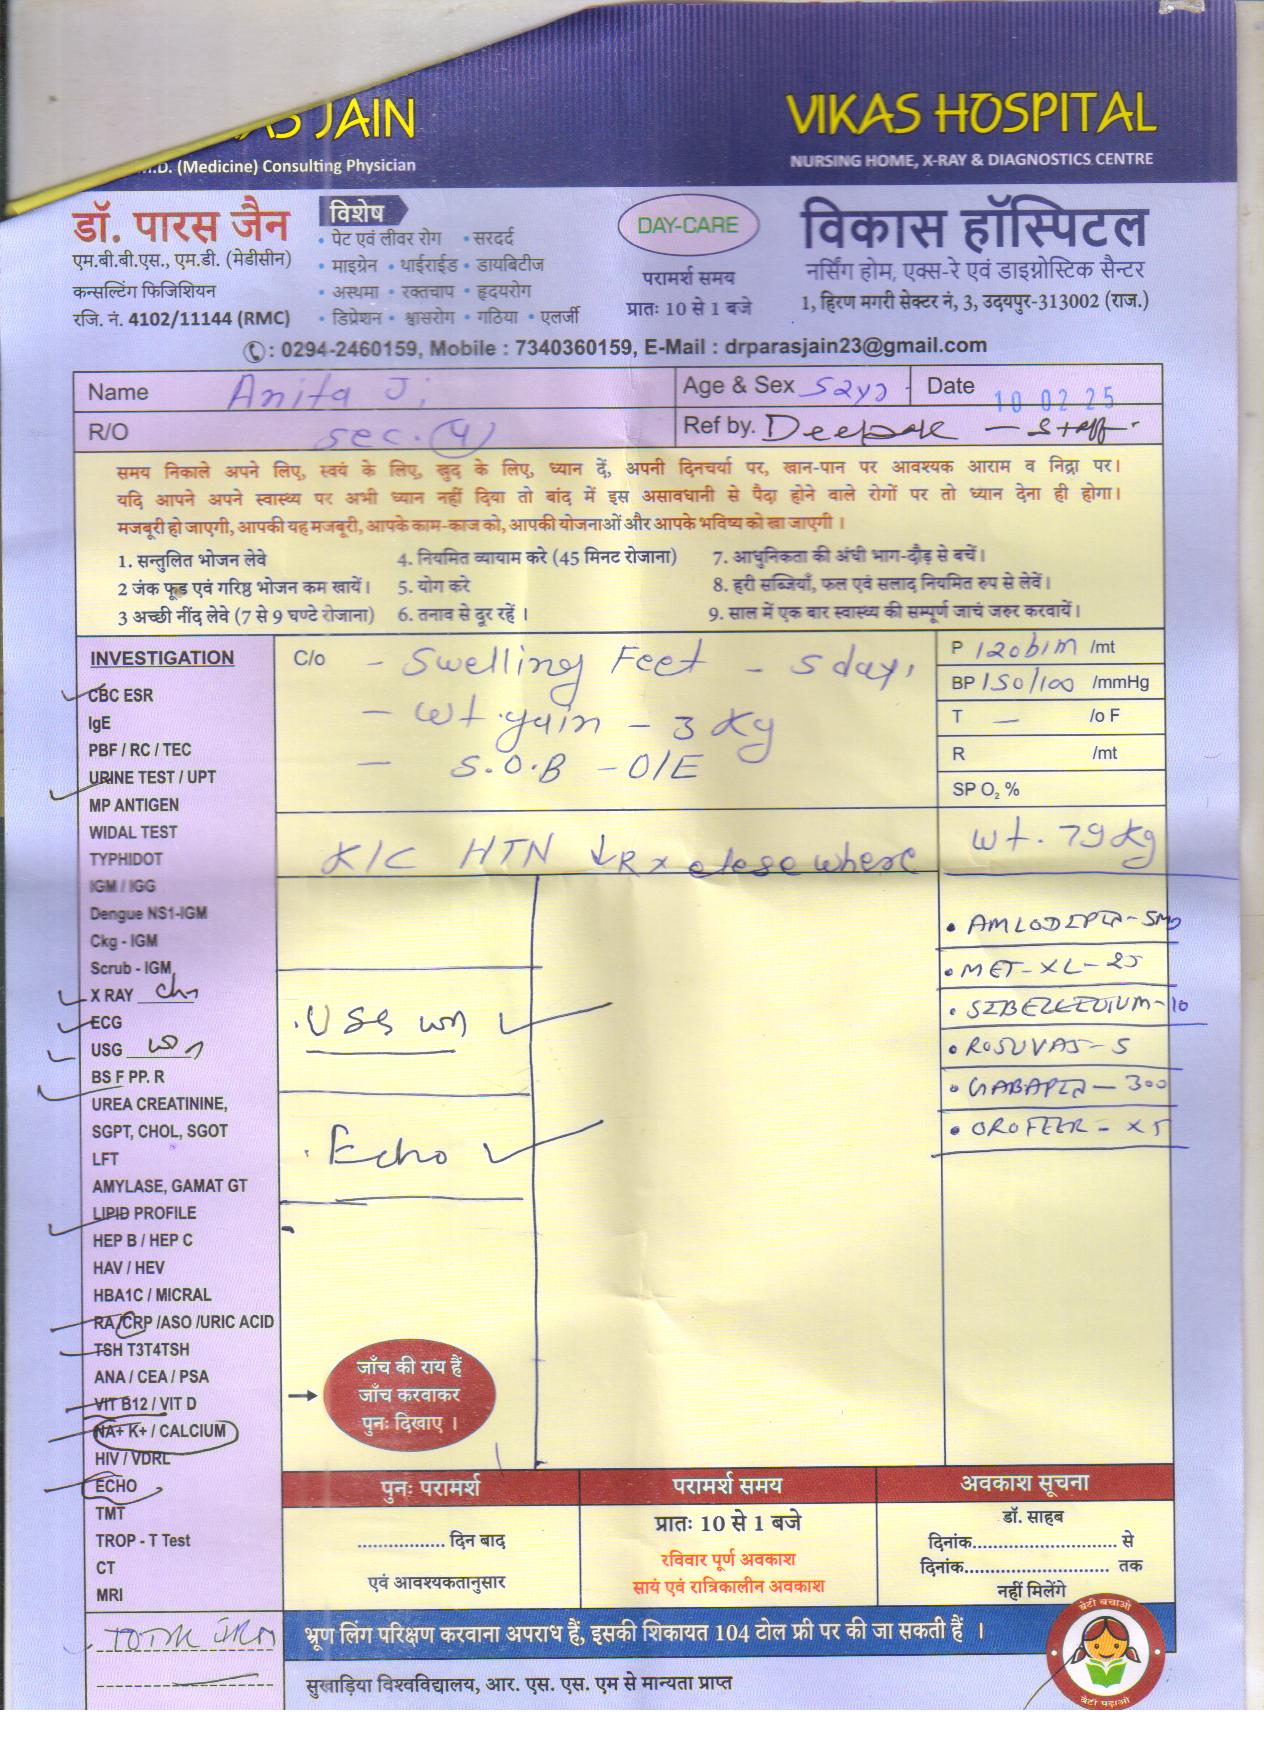 AS JAIN
M.D. (Medicine) Consulting Physician
VIKAS HOSPITAL
NURSING HOME, X-RAY & DIAGNOSTICS CENTRE
डॉ. पारस जैन
एम.बी.बी.एस., एम.डी. (मेडीसीन)
कन्सल्टिंग फिजिशियन
रजि. नं. 4102/11144 (RMC)
विशेष
• पेट एवं लीवर रोग • सरदर्द
• माइग्रेन • थाईराईड • डायबिटीज
• अस्थमा • रक्तचाप • हृदयरोग
• डिप्रेशन • श्वासरोग • गठिया • एलर्जी
DAY-CARE
परामर्श समय
प्रातः 10 से 1 बजे
विकास हॉस्पिटल
नर्सिंग होम, एक्स-रे एवं डाइग्नोस्टिक सैन्टर
1, हिरण मगरी सेक्टर नं, 3, उदयपुर-313002 (राज.)
: 0294-2460159, Mobile : 7340360159, E-Mail : drparasjain23@gmail.com
Name Anita Ji
Age & Sex 52y Date 10 02 25
R/O Sec. (4)
Ref by. Deepak - Staff
समय निकाले अपने लिए, स्वयं के लिए, खुद के लिए, ध्यान दें, अपनी दिनचर्या पर, खान-पान पर आवश्यक आराम व निद्रा पर।
यदि आपने अपने स्वास्थ्य पर अभी ध्यान नहीं दिया तो बांद में इस असावधानी से पैदा होने वाले रोगों पर तो ध्यान देना ही होगा।
मजबूरी हो जाएगी, आपकी यह मजबूरी, आपके काम-काज को, आपकी योजनाओं और आपके भविष्य को खा जाएगी ।
1. सन्तुलित भोजन लेवे 4. नियमित व्यायाम करे (45 मिनट रोजाना) 7. आधुनिकता की अंधी भाग-दौड़ से बचें।
2 जंक फूड एवं गरिष्ठ भोजन कम खायें। 5. योग करे 8. हरी सब्जियाँ, फल एवं सलाद नियमित रुप से लेवें।
3 अच्छी नींद लेवे (7 से 9 घण्टे रोजाना) 6. तनाव से दूर रहें । 9. साल में एक बार स्वास्थ्य की सम्पूर्ण जाचं जरुर करवायें।
INVESTIGATION
CBC ESR
IgE
PBF / RC / TEC
URINE TEST / UPT
MP ANTIGEN
WIDAL TEST
TYPHIDOT
IGM / IGG
Dengue NS1-IGM
Ckg - IGM
Scrub - IGM
X RAY
ECG
USG
BS F PP. R
UREA CREATININE,
SGPT, CHOL, SGOT
LFT
AMYLASE, GAMAT GT
LIPID PROFILE
HEP B / HEP C
HAV / HEV
HBA1C / MICRAL
RA/CRP /ASO /URIC ACID
TSH T3T4TSH
ANA / CEA / PSA
VIT B12 / VIT D
NA+ K+ / CALCIUM
HIV / VDRL
ECHO
TMT
TROP - T Test
CT
MRI
C/o - Swelling Feet - 5 day,
- wt. gain - 3 Kg
- S.O.B - O/E
K/C HTN ↓ Rx elesewhere
P 120b/m /mt
BP 150/100 /mmHg
T — /o F
R /mt
SP O2 %
wt. 79 Kg
• AMLODIPIN - 5MG
• MET - XL - 25
• SIBELLIUM - 10
• ROSUVAS - 5
• GABAPIN - 300
• OROFEER - XT
. USG
. Echo
जाँच की राय हैं
जाँच करवाकर
पुनः दिखाए ।
पुनः परामर्श
................ दिन बाद
एवं आवश्यकतानुसार
परामर्श समय
प्रातः 10 से 1 बजे
रविवार पूर्ण अवकाश
सायं एवं रात्रिकालीन अवकाश
अवकाश सूचना
डॉ. साहब
दिनांक.......................... से
दिनांक.......................... तक
नहीं मिलेंगे
भ्रूण लिंग परिक्षण करवाना अपराध हैं, इसकी शिकायत 104 टोल फ्री पर की जा सकती हैं ।
सुखाड़िया विश्वविद्यालय, आर. एस. एस. एम से मान्यता प्राप्त
बेटी बचाओ
बेटी पढ़ाओ